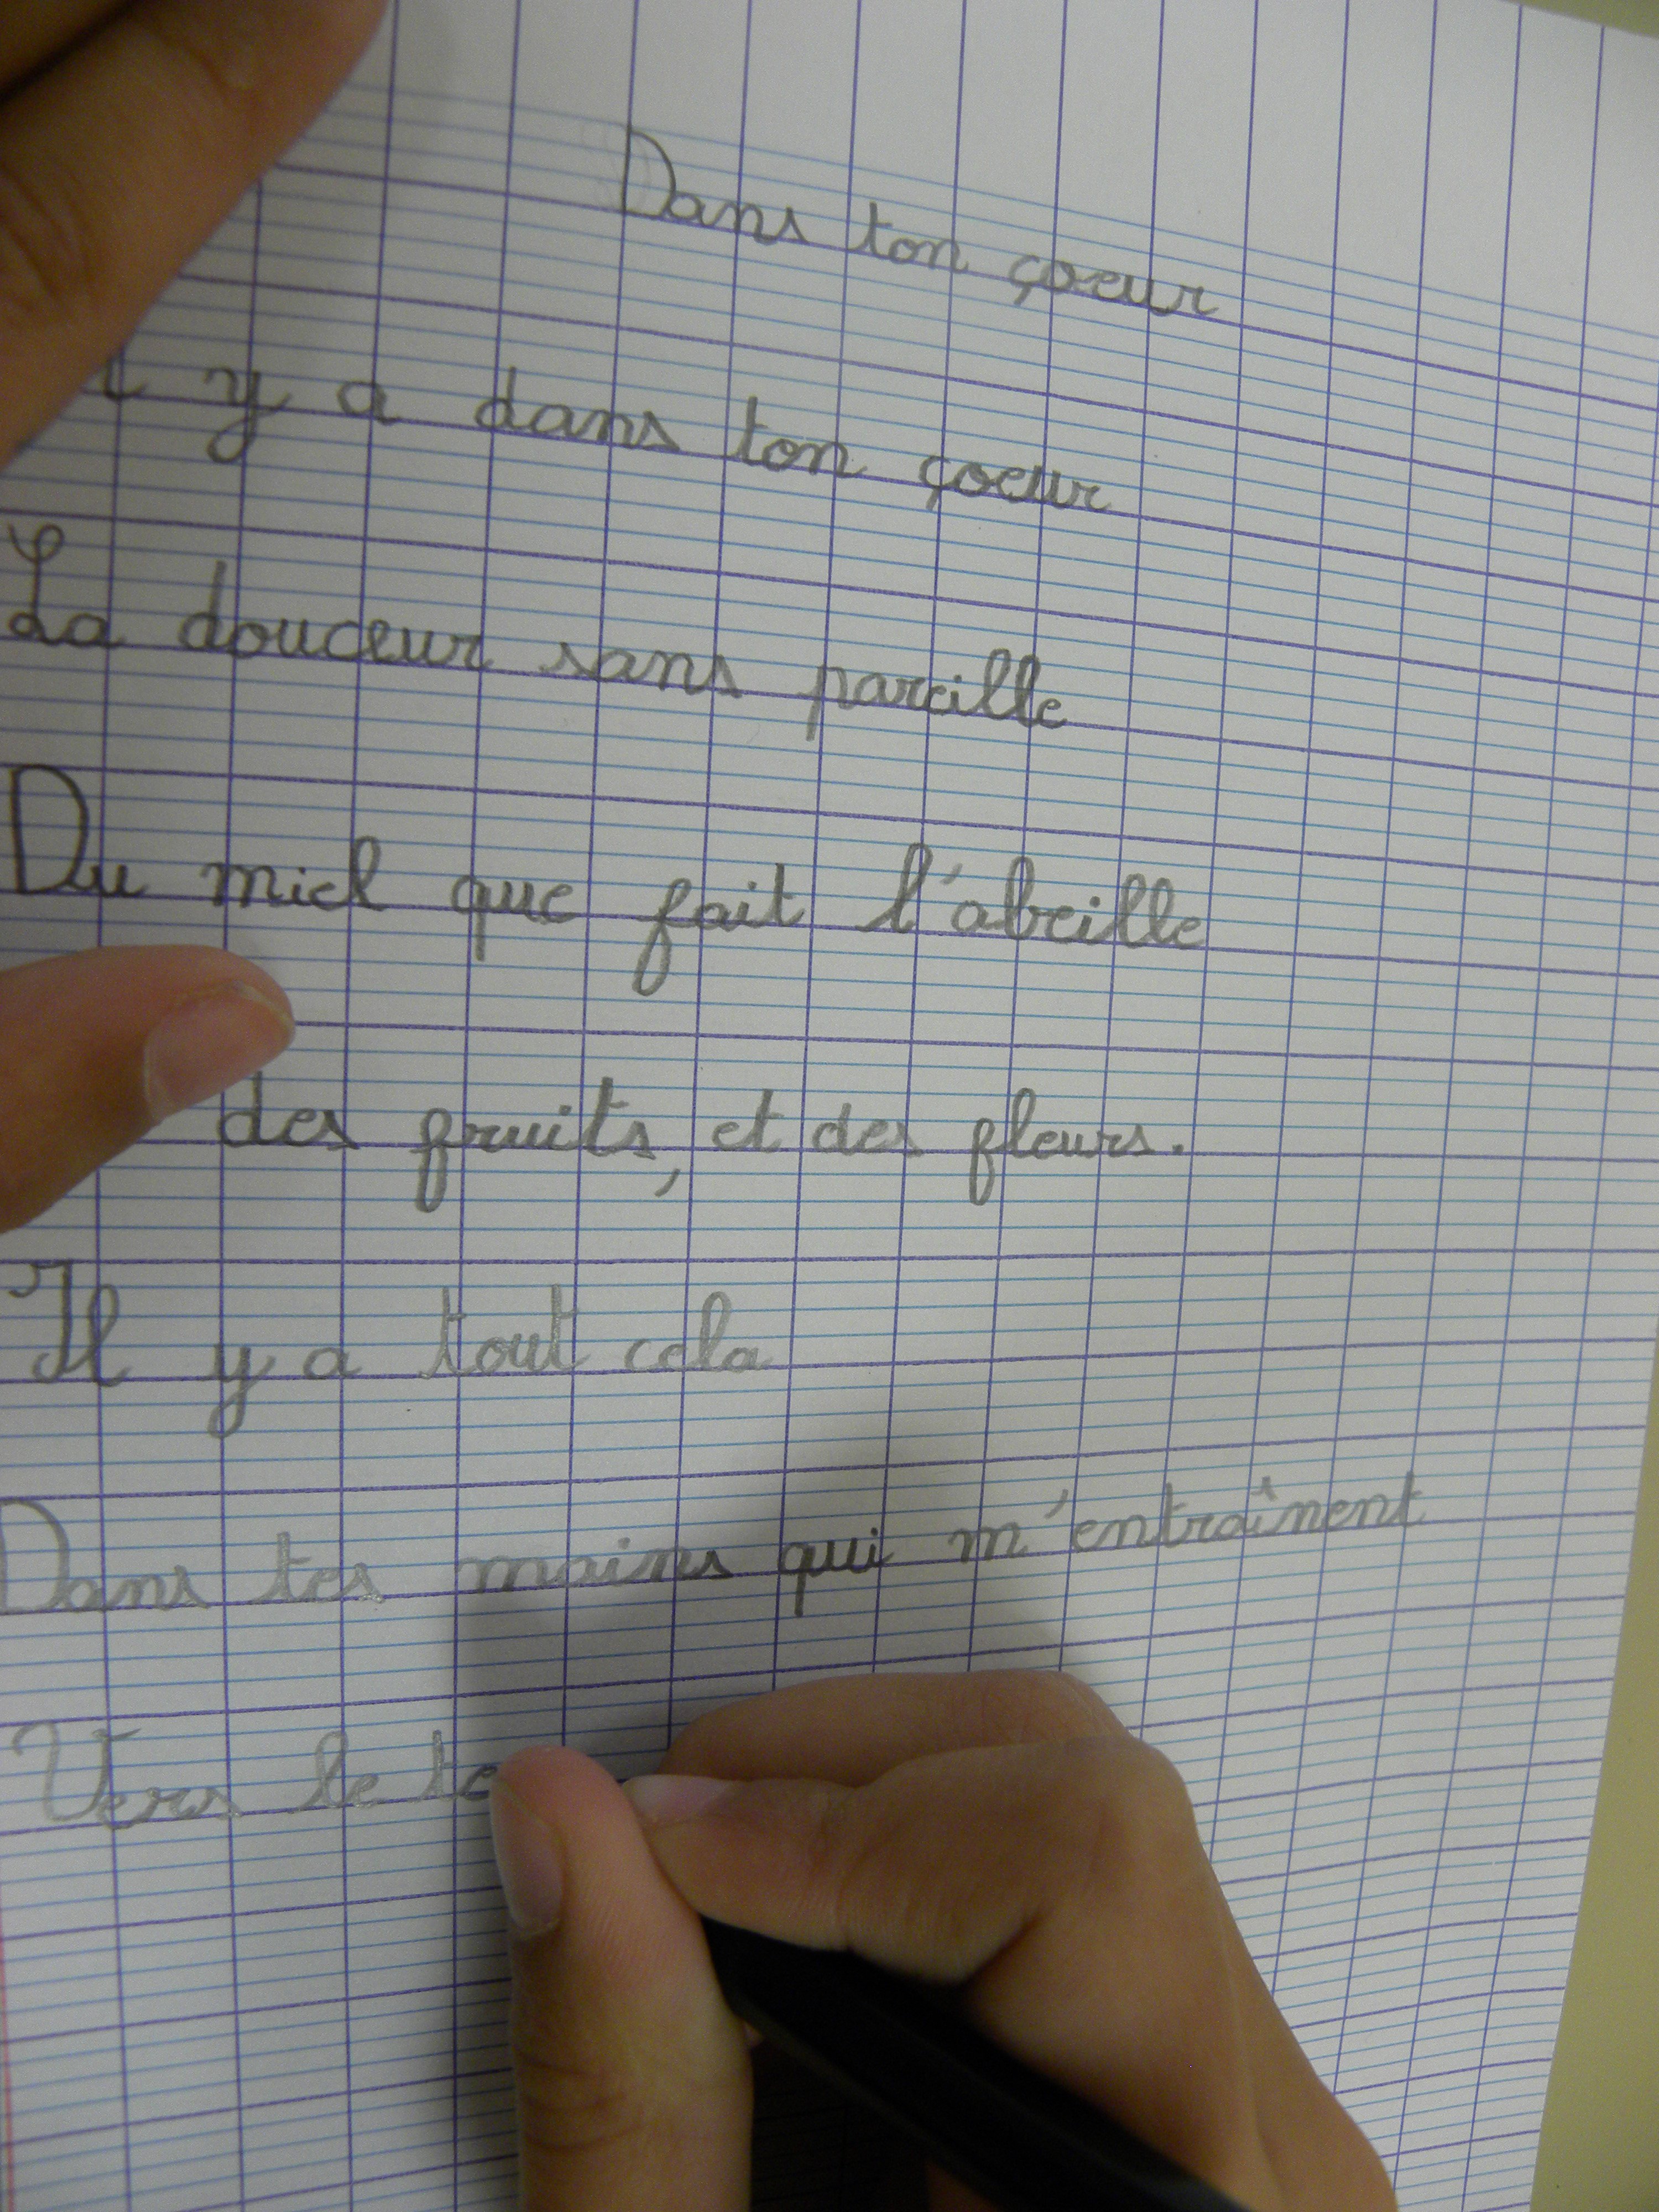 Dans ton çoeur
y a dans ton çoeur
La douceur sans pareille
Du miel que fait l'abeille
des fruits, et des fleurs.
Il y a tout cela
Dans tes mains qui m'entraînent
Vers le